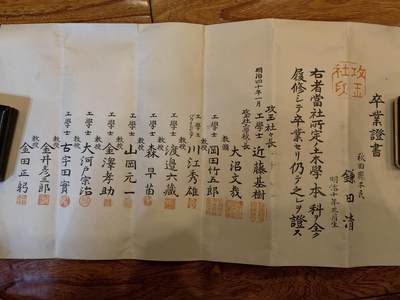 卒業證書
秋田縣平民
鎌田清
明治十年三月生
右者當社所定土木學本科ヲ全ク
履修シテ卒業セリ仍テ之ヲ證ス
攻玉社印
明治四十年一月
攻玉社々長
工學士 近藤基樹
大沼文哉
教頭
岡田竹五郎
教授
江秀雄
工學士
教授
渡邊六藏
工學士
教授
森早苗
工學士
教授
山岡元一
教授
金澤孝助
工學士
教授
大河戸宗治
工學士
教授
古宇田實
教授
金井彦三郎
教授
金田正躬